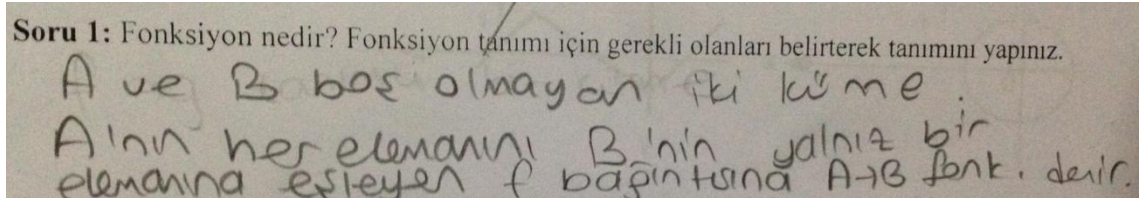 Soru 1: Fonksiyon nedir? Fonksiyon tanımı için gerekli olanları belirterek tanımını yapınız.
A ve B boş olmayan iki küme.
A'nın her elemanını B'nin yalnız bir
elemanına eşleyen f bağıntısına A→B fonk. denir.